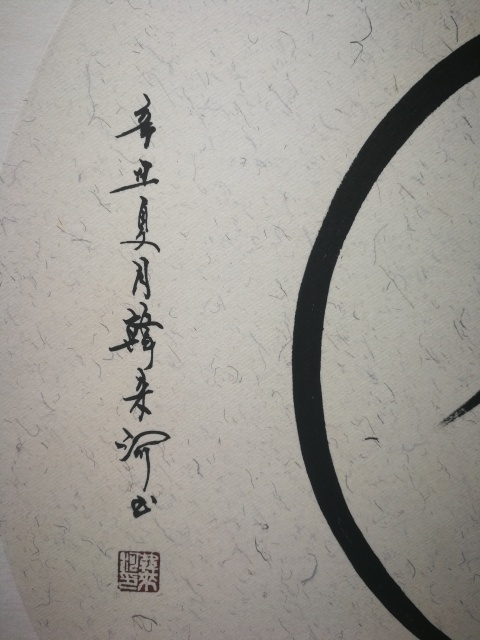 辛丑夏月韓来河书